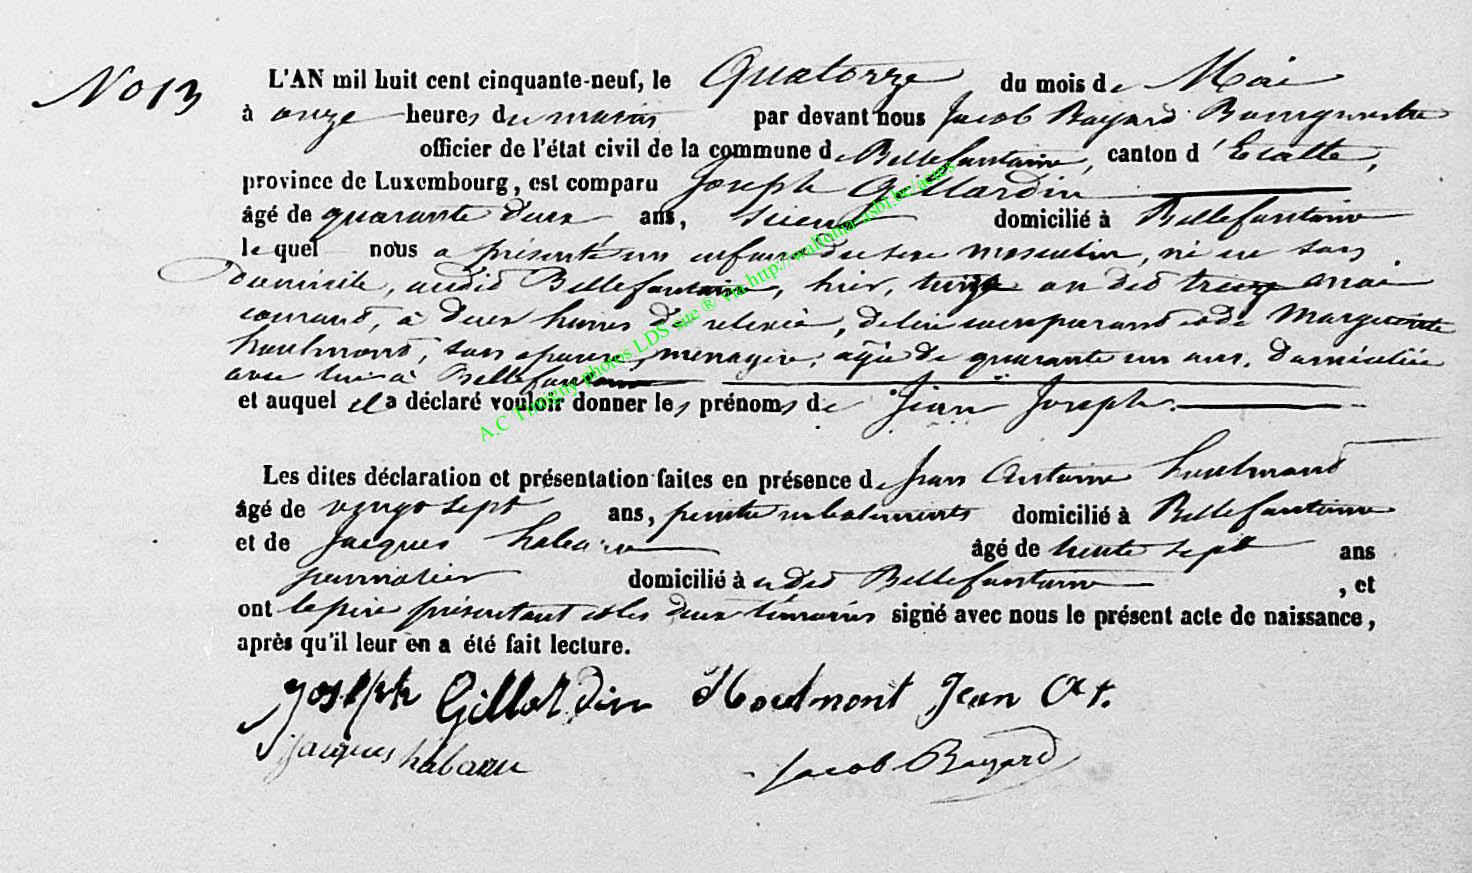 No 13
L'AN mil huit cent cinquante-neuf, le Quatorze du mois de Mai
à onze heures du matin par devant nous Jacob Bayard Bourgmestre
officier de l'état civil de la commune de Bellefontaine, canton d'Etalle,
province de Luxembourg, est comparu Joseph Gillardin
âgé de quarante deux ans, domicilié à Bellefontaine
le quel nous a présenté un enfant du sexe masculin, né en son
domicile, audit Bellefontaine, hier, treize mai
courant, à deux heures de relevée, de lui comparant et de Marguerite
houlmont, son épouse, ménagère, âgée de quarante un ans, domiciliée
avec lui à Bellefontaine
et auquel il a déclaré vouloir donner les prénoms de Jean Joseph.
Les dites déclaration et présentation faites en présence de Jean Antoine houlmont
âgé de vingt sept ans, peintre en batiments domicilié à Bellefontaine
et de Jacques habaru âgé de trente sept ans
journalier domicilié à Bellefontaine, et
ont le père présentant et les deux témoins signé avec nous le présent acte de naissance,
après qu'il leur en a été fait lecture.
Joseph Gillardin Houlmont Jean Ant.
jacques habaru Jacob Bayard
A.C Tintigny photos LDS site ® via http://wallonia-asbl.be/actes